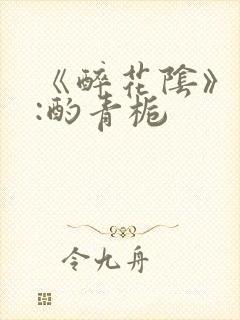 《醉花陰》
:酌青栀
令九舟